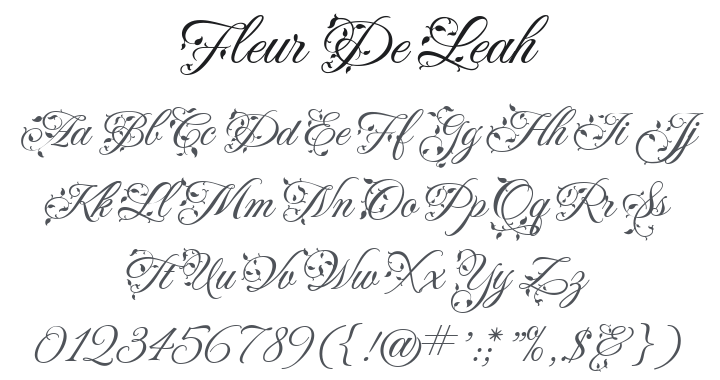 Fleur De Leah
Aa Bb Cc Dd Ee Ff Gg Hh Ii Jj
Kk Ll Mm Nn Oo Pp Qq Rr Ss
Tt Uu Vv Ww Xx Yy Zz
0123456789({!@#':;*"%,$&})